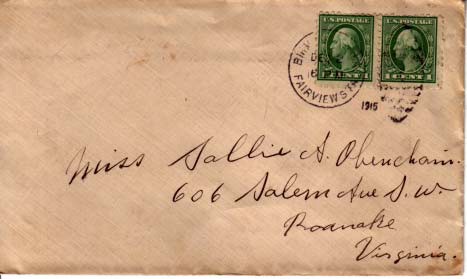 U.S. POSTAGE U.S. POSTAGE
1 CENT 1 1 CENT 1
FAIRVIEW STA
1915
Miss Sallie A. Obenchain.
606 Salem Ave S.W.
Roanoke
Virginia.